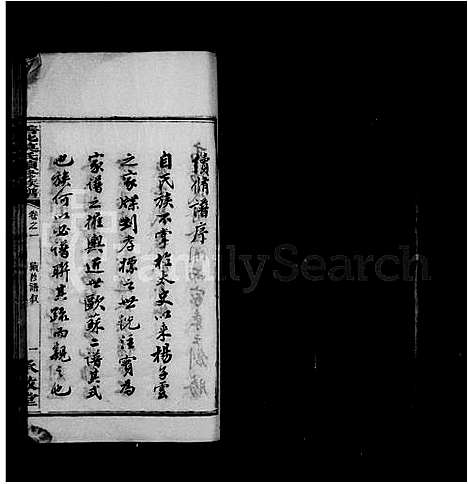 續脩譜序
自氏族不掌於太史以來楊子雲
之家牒劉孝標之世說注實為
家譜之權輿近世歐蘇二譜其式
也族何以必譜聯其疏而親之也
卷之一
續修譜叙
一
敦堂
FamilySearch